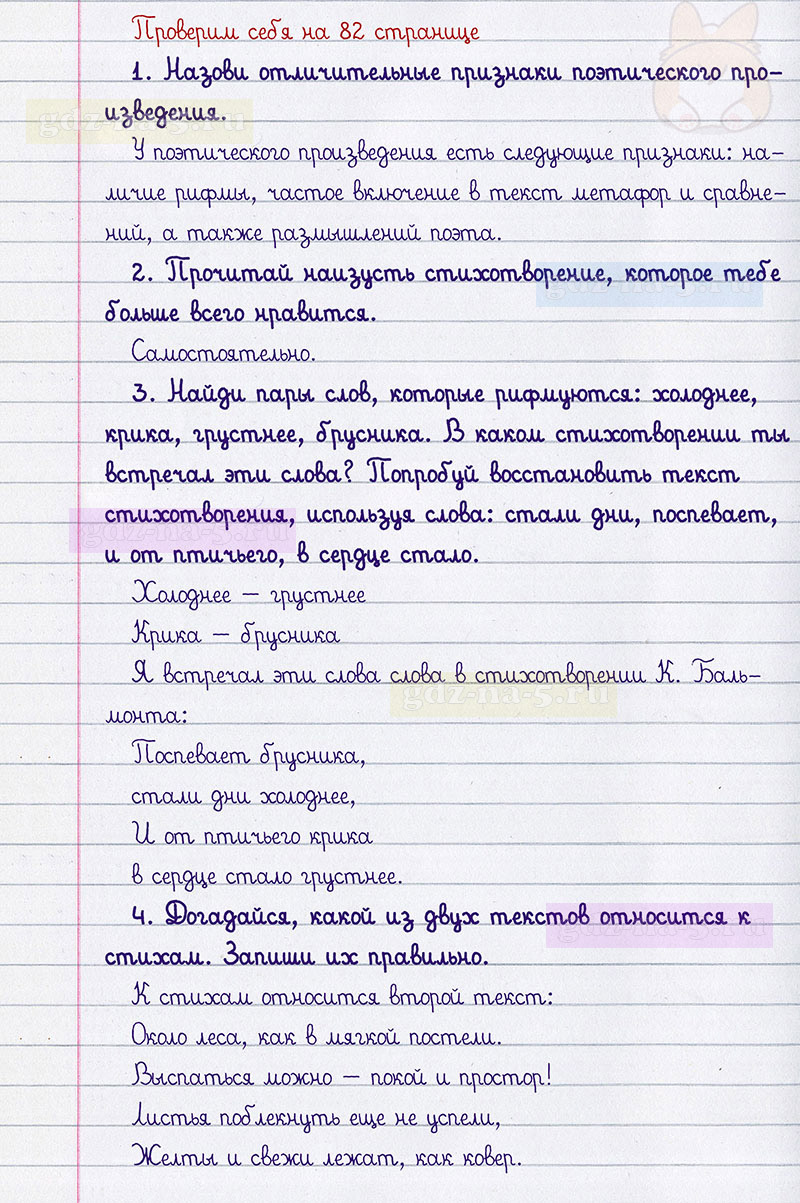 Проверим себя на 82 странице
1. Назови отличительные признаки поэтического про-
изведения.
gdz-na-5.ru
У поэтического произведения есть следующие признаки: на-
личие рифмы, частое включение в текст метафор и сравне-
ний, а также размышлений поэта.
2. Прочитай наизусть стихотворение, которое тебе
gdz-na-5.ru
больше всего нравится.
Самостоятельно.
3. Найди пары слов, которые рифмуются: холоднее,
крика, грустнее, брусника. В каком стихотворении ты
встречал эти слова? Попробуй восстановить текст
стихотворения, используя слова: стали дни, поспевает,
gdz-na-5.ru
и от птичьего, в сердце стало.
Холоднее – грустнее
Крика – брусника
Я встречал эти слова слова в стихотворении К. Баль-
gdz-na-5.ru
монта:
Поспевает брусника,
стали дни холоднее,
И от птичьего крика
в сердце стало грустнее.
4. Догадайся, какой из двух текстов относится к
gdz-na-5.ru
стихам. Запиши их правильно.
К стихам относится второй текст:
Около леса, как в мягкой постели.
Выспаться можно – покой и простор!
Листья поблекнуть еще не успели,
Желты и свежи лежат, как ковер.